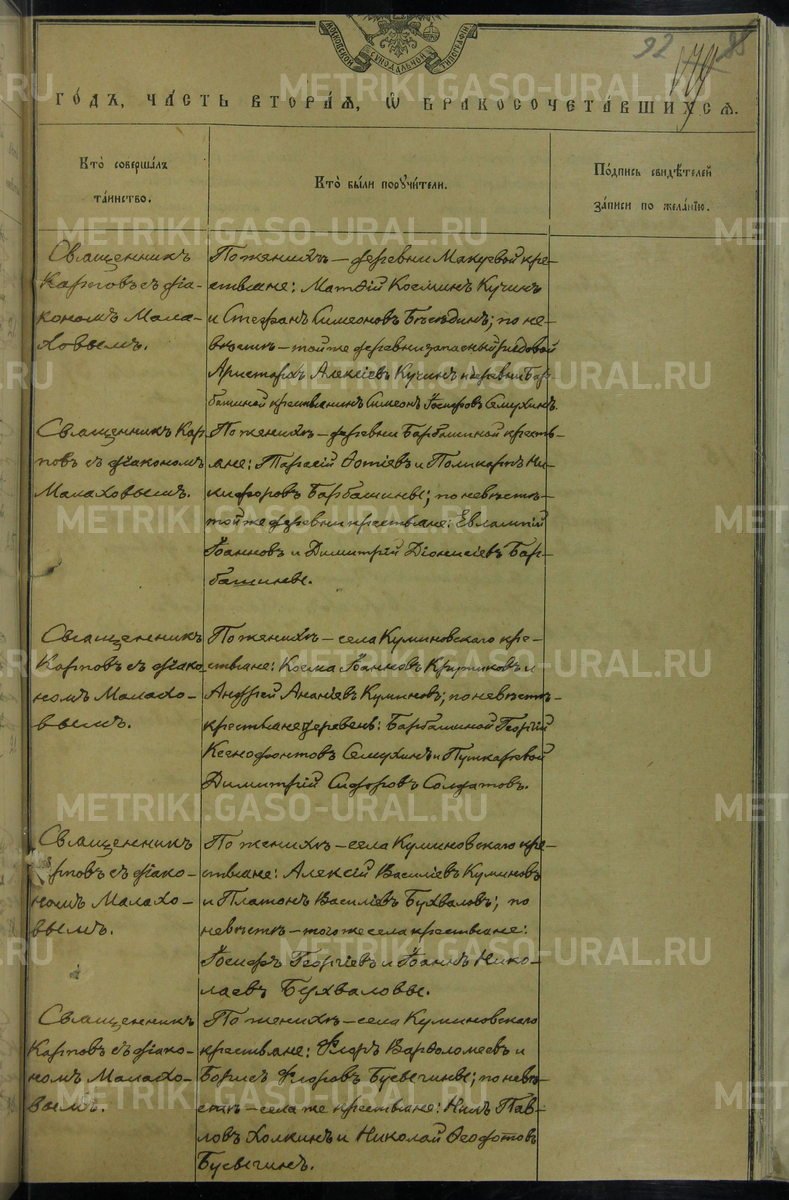 МОСКОВСКОЙ СѴНОДАЛЬНОЙ ТИПОГРАФІИ
92
88
METRIKI.GASO-URAL.RU
го́дъ, ча́сть втора́ѧ, ѡ҆ бракосочета́вшихсѧ.
Кто̀ соверша́лъ
та́инство.
Кто̀ бы́ли поручи́тели.
По́дпись свидѣ́телей
за́писи по жела́нїю.
Священникъ
Карповъ съ діа-
кономъ Мала-
ховымъ.
По женихѣ — деревни Макуевой кре-
стьяне: Матѳій Косминъ Кучинъ
и Стефанъ Симеоновъ Бѣсѣдинъ; по не-
вѣстѣ — той же деревни запасный рядовой
Аристархъ Алексіевъ Кучинъ и деревни Бар-
башиной крестьянинъ Симеонъ Іосифовъ Семухинъ.
Священникъ Кар-
повъ съ діакономъ
Малаховымъ.
По женихѣ — деревни Барбашиной кресть-
яне: Тарасій Фотіевъ и Поликарпъ Ни-
кифоровъ Барбашины; по невѣстѣ —
той же деревни крестьяне: Евлампій
Іоанновъ и Димитрій Діонисіевъ Бар-
башины.
Священникъ
Карповъ съ діако-
номъ Малахо-
вымъ.
По женихѣ — села Куминовскаго кре-
стьяне: Косма Іоанновъ Крутиковъ и
Андрей Ананіевъ Куминовъ; по невѣстѣ —
крестьяне деревень: Барбашиной Георгій
Ксенофонтовъ Семухинъ и Пушкаревой
Димитрій Сидоровъ Солдатовъ.
Священникъ
Карповъ съ діако-
номъ Малахо-
вымъ.
По женихѣ — села Куминовскаго кре-
стьяне: Алексій Василіевъ Куминовъ
и Платонъ Василіевъ Бухваловъ; по
невѣстѣ — того же села крестьяне:
Іосифъ Георгіевъ и Іоаннъ Нико-
лаевъ Бухваловы.
Священникъ
Карповъ съ діако-
номъ Малахо-
вымъ.
По женихѣ — села Куминовскаго
крестьяне: Флоръ Варѳоломеевъ и
Борисъ Флоровъ Бусыгины; по невѣ-
стѣ — села же крестьяне: Нилъ Пав-
ловъ Холкинъ и Николай Ѳеофотовъ
Бусыгинъ.